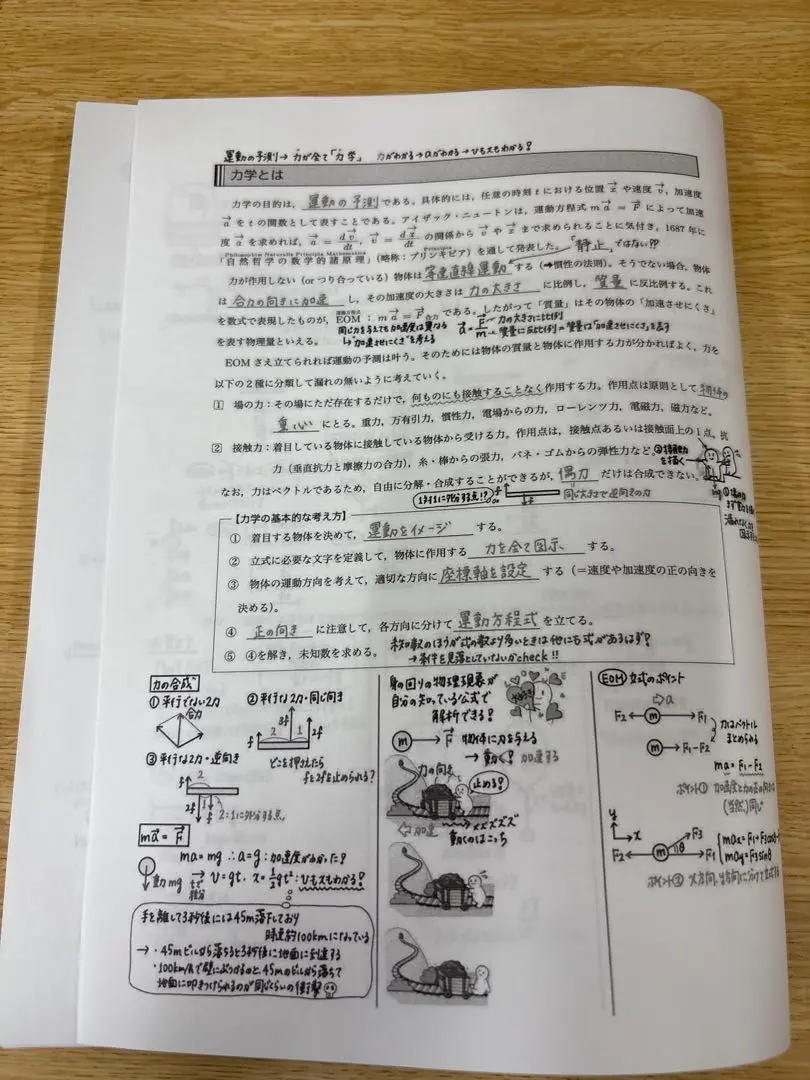 運動の予測→力が全て「力学」 力がわかる→aがわかる→vもxもわかる?
力学とは
力学の目的は,運動の予測である。具体的には,任意の時刻tにおける位置x→や速度v→,加速度
a→をtの関数として表すことである。アイザック・ニュートンは,運動方程式ma→=F→によって加速
度a→を求めれば,a→=dv→/dt,v→=dx→/dtの関係からv→やx→まで求められることに気付き,1687年に
「自然哲学の数学的諸原理」(略称:プリンキピア)を通して発表した。「静止」ではない??
Philosophiæ Naturalis Principia Mathematica Principia
力が作用しない(or つり合っている)物体は等速直線運動する(➡慣性の法則)。そうでない場合,物体
は合力の向きに加速し,その加速度の大きさは力の大きさに比例し,質量に反比例する。これ
を数式で表現したものが,EOM:ma→=F→合力である。したがって「質量」はその物体の「加速させにくさ」
運動方程式
を表す物理量といえる。
同じ力を与えても加速度は異なる
↳"加速させにくさ"を考える
a→=F→/m
力の大きさに比例
質量に反比例=質量は"加速させにくさ"を表す
EOMさえ立てられれば運動の予測は叶う。そのためには物体の質量と物体に作用する力が分かればよく,力を
以下の2種に分類して漏れの無いように考えていく。
1 場の力:その場にただ存在するだけで,何ものにも接触することなく作用する力。作用点は原則として物体の
重心にとる。重力,万有引力,慣性力,電場からの力,ローレンツ力,電磁力,磁力など。
2 接触力:着目している物体に接触している物体から受ける力。作用点は,接触点あるいは接触面上の1点。抗
力(垂直抗力と摩擦力の合力),糸・棒からの張力,バネ・ゴムからの弾性力など。
②接触力を描く
mg
なお,力はベクトルであるため,自由に分解・合成することができるが,偶力だけは合成できない。
同じ大きさで逆向きの力
f
f
【力学の基本的な考え方】
① 着目する物体を決めて,運動をイメージする。
② 立式に必要な文字を定義して,物体に作用する力を全て図示する。
③ 物体の運動方向を考えて,適切な方向に座標軸を設定する(=速度や加速度の正の向きを
決める)。
④ 正の向きに注意して,各方向に分けて運動方程式を立てる。
⑤ ④を解き,未知数を求める。
未知数のほうが式の数より多いときは他にも式があるはず?
→条件を見落としていないかcheck!!
力の合成
①平行でない2力
合力
②平行な2力・同じ向き
3f
f
2
1
2f
どこを押さえたら
fと2fを止められる?
③平行な2力・逆向き
f
2
2f
1
f
2:1に外分する点。
ma→=F→
ma=mg ∴a=g:加速度がわかった?
mg
v=gt. x=1/2gt²:vもxもわかる?
tで積分
手を離して3秒後には45m落下しており
時速約100kmになっている
→・45mビルから落ちると3秒後に地面に到達する
・100km/hで壁にぶつかるのと,45mのビルから落ちて
地面に叩きつけられるのが同じくらいの衝撃
身の回りの物理現象が
自分の知っている公式で
解析できる?
m→F→ 物体に力を与える
→動く?加速する
力の向き
止める?
⇐加速
ズズズズ
動くのはこっち
EOM 立式のポイント
⇒a
F2←m→F1
力はベクトル
まとめられる
m→F1-F2
ma=F1-F2
ポイント①
加速度と力の正の向きは
(当然)同じ
y
x
F3
F2←m→F1
θ
max=F1+F3cosθ
may=F3sinθ
ポイント② x方向,y方向に分けて立式する